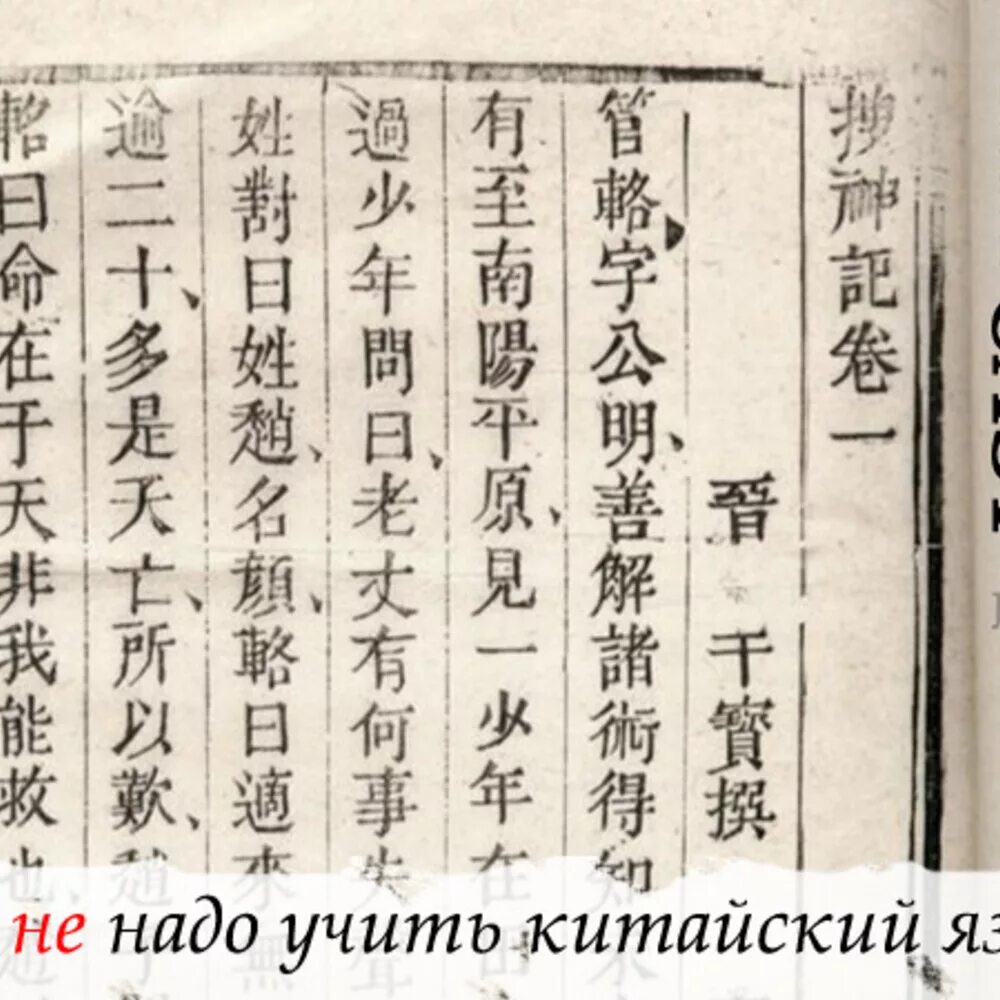 搜神記卷一
晉 干寶撰
管輅字公明善解諸術得知
有至南陽平原見一少年在田
過少年問曰老丈有何事失聲
姓對曰姓趙名顏輅曰適來無
逾二十多是夭亡所以歎趙
輅曰命在于天非我能救也
не надо учить китайский яз